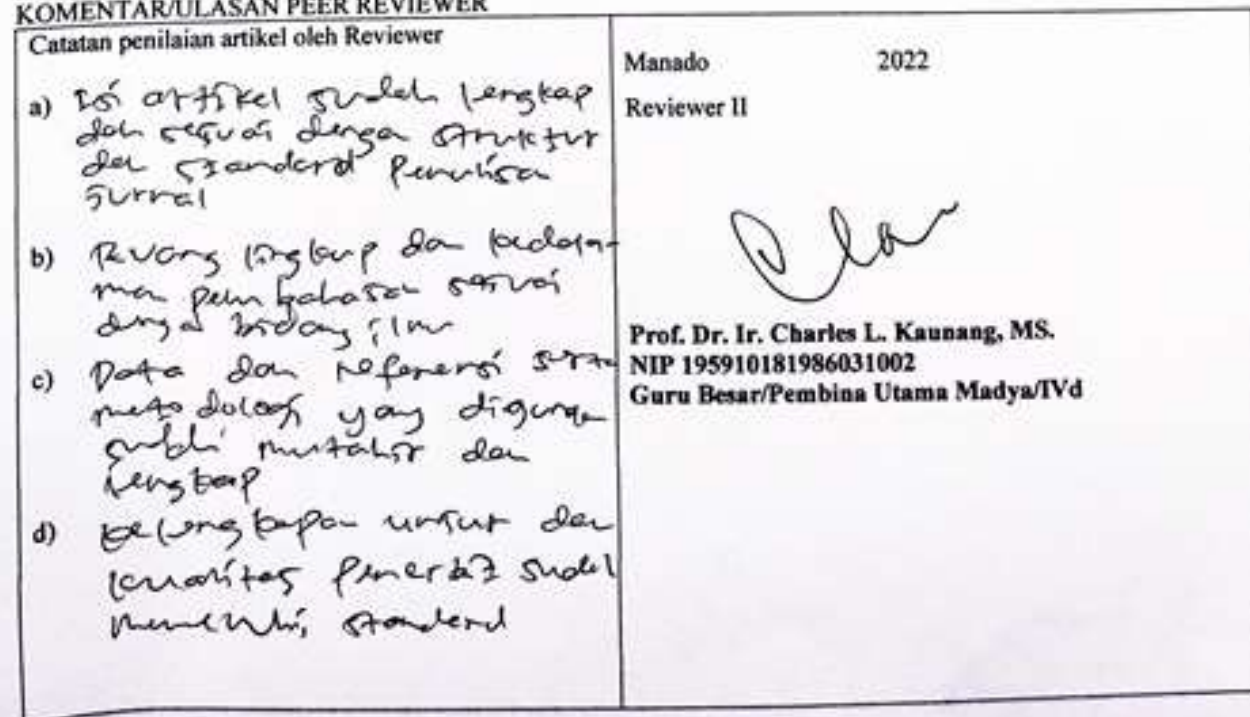 KOMENTAR/ULASAN PEER REVIEWER
Catatan penilaian artikel oleh Reviewer
a) Isi artikel sudah lengkap
dan sesuai dengan struktur
dan standard Penulisan
Jurnal
b) Ruang lingkup dan kedala-
man pembahasan sesuai
dengan bidang ilmu
c) Data dan referensi serta
metodologi yang digunakan
sudah mutahir dan
lengkap
d) kelengkapan unsur dan
kualitas Penerbit sudah
memenuhi standard
Manado 2022
Reviewer II
Prof. Dr. Ir. Charles L. Kaunang, MS.
NIP 195910181986031002
Guru Besar/Pembina Utama Madya/IVd